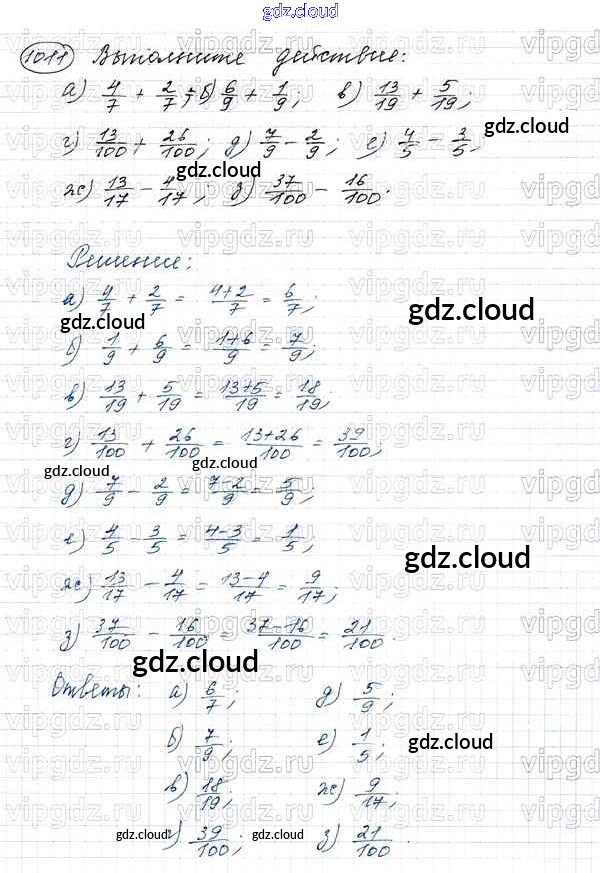 gdz.cloud
gdz.cloud
1011 Выполните действие:
а) 4/7 + 2/7; б) 6/9 + 1/9; в) 13/19 + 5/19;
gdz.cloud
г) 13/100 + 26/100; д) 7/9 − 2/9; е) 4/5 − 3/5;
gdz.cloud
ж) 13/17 − 4/17; з) 37/100 − 16/100.
Решение:
а) 4/7 + 2/7 = 4+2/7 = 6/7;
gdz.cloud
gdz.cloud
б) 1/9 + 6/9 = 1+6/9 = 7/9;
в) 13/19 + 5/19 = 13+5/19 = 18/19;
г) 13/100 + 26/100 = 13+26/100 = 39/100;
gdz.cloud gdz.cloud
д) 7/9 − 2/9 = 7−2/9 = 5/9;
е) 4/5 − 3/5 = 4−3/5 = 1/5;
gdz.cloud
ж) 13/17 − 4/17 = 13−4/17 = 9/17;
з) 37/100 − 16/100 = 37−16/100 = 21/100.
gdz.cloud
Ответы: а) 6/7; д) 5/9;
б) 7/9; е) 1/5;
gdz.cloud
в) 18/19; ж) 9/17;
) 39/100; з) 21/100.
gdz.cloud gdz.cloud
vipgdz.ru